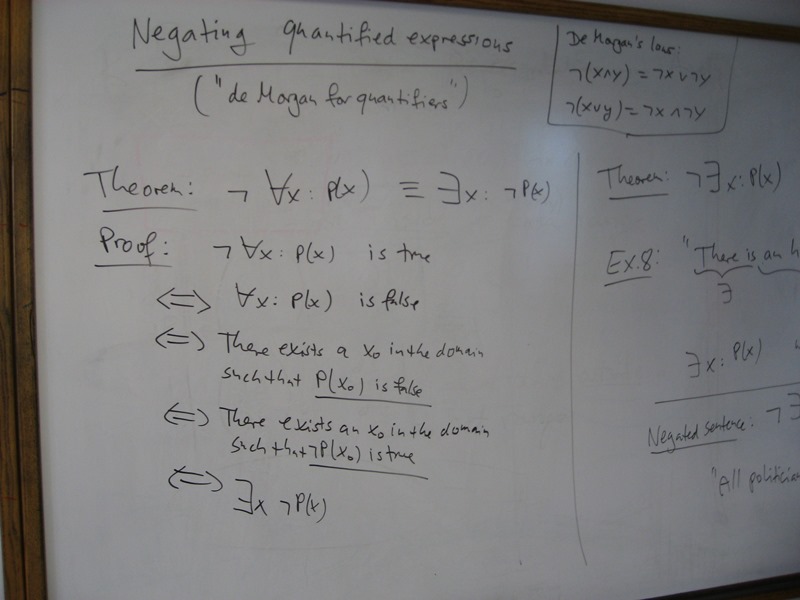 Negating quantified expressions
("de Morgan for quantifiers")
De Morgan's laws:
¬(x∧y) = ¬x∨¬y
¬(x∨y) = ¬x∧¬y
Theorem: ¬ ∀x: P(x) ≡ ∃x: ¬P(x)
Proof: ¬∀x: P(x) is true
⇔ ∀x: P(x) is false
⇔ There exists a x₀ in the domain
such that P(x₀) is false
⇔ There exists an x₀ in the domain
such that ¬P(x₀) is true
⇔ ∃x ¬P(x)
Theorem: ¬∃x: P(x)
Ex.8: "There is an h
∃
∃x: P(x)
Negated sentence: ¬∃
"All politicia